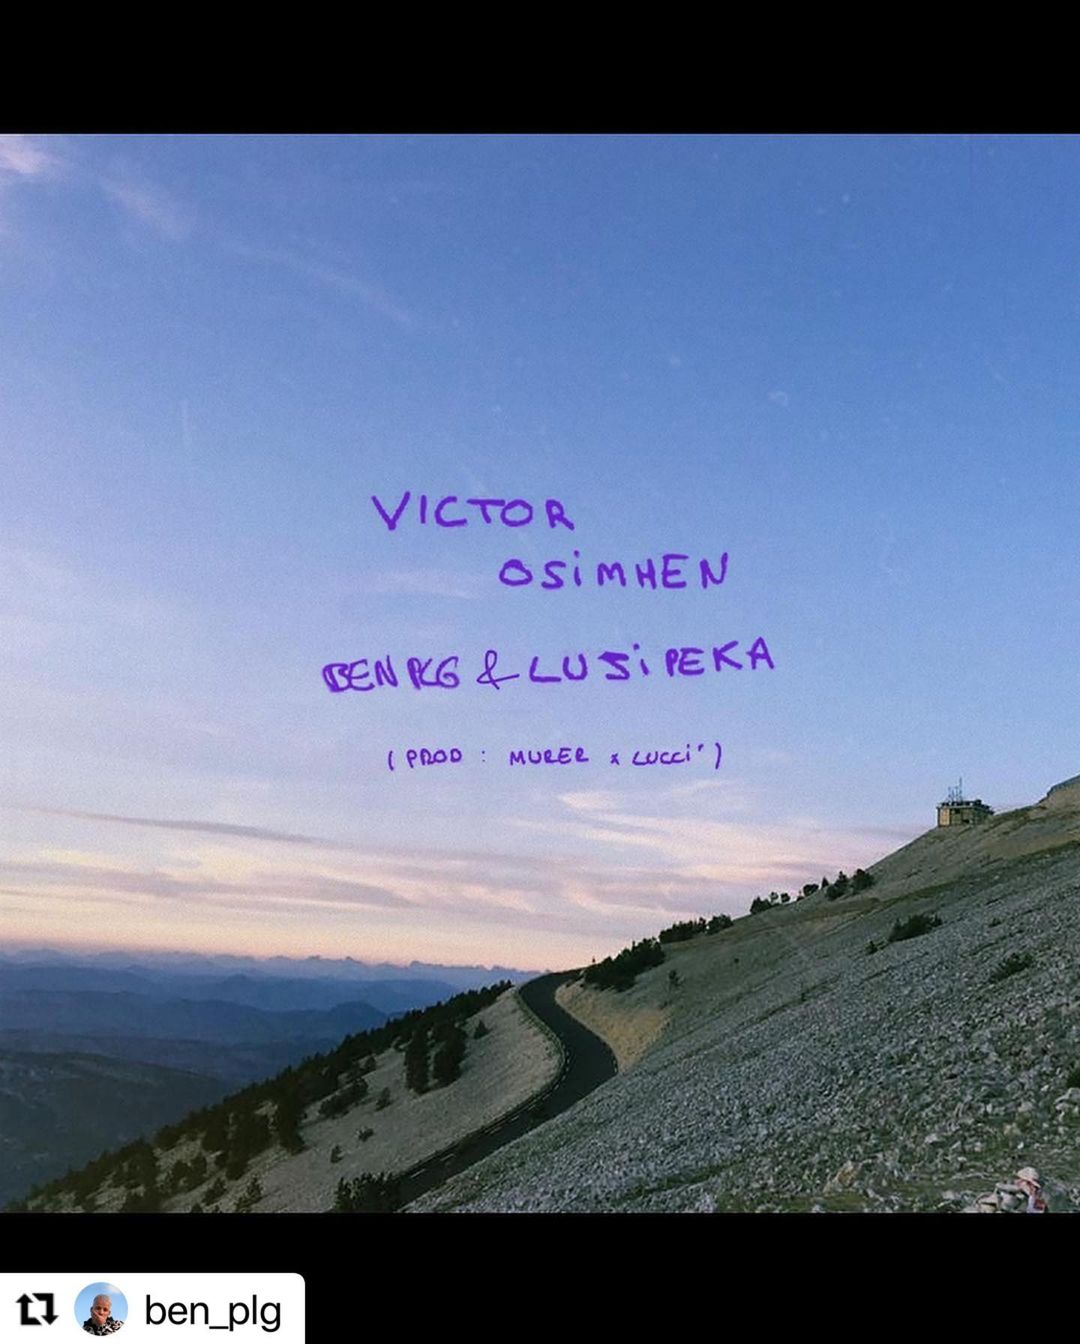 VICTOR
OSiMHEN
BEN PLG & LUSiPEKA
(PROD : MURER x LUCCi')
ben_plg